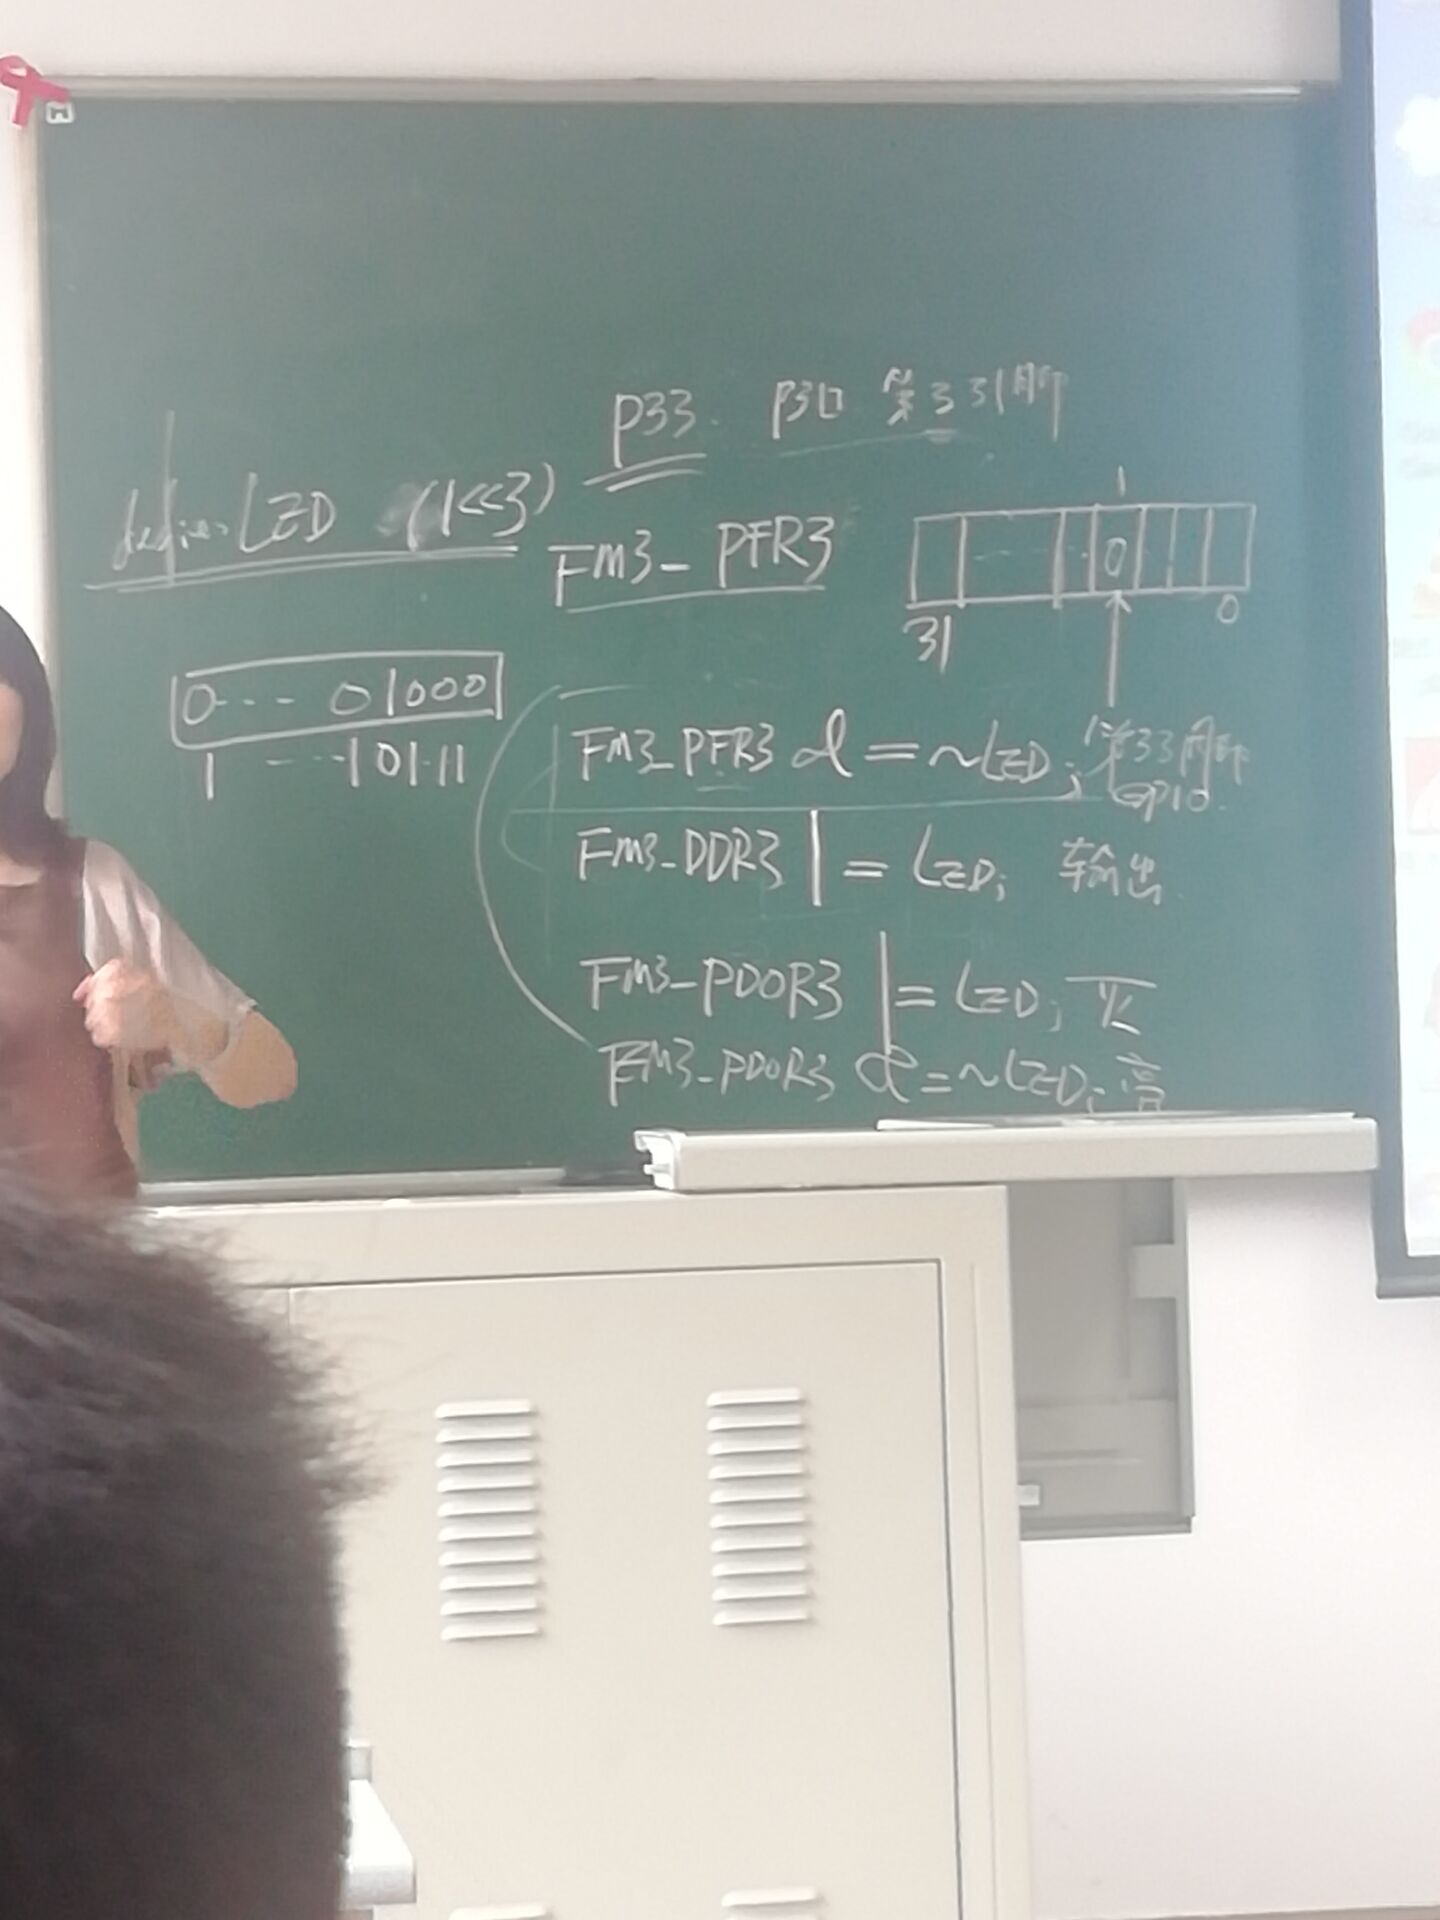 P33. P3口 第3引脚
define LED (1<<3)
FM3_PFR3
1
0
31 0
0--- 01000
1 ---10111
FM3_PFR3 &=~LED; 第33引脚
GPIO.
FM3_DDR3 |= LED; 输出
FM3_PDOR3 |= LED; 灭
FM3_PDOR3 &=~LED; 亮